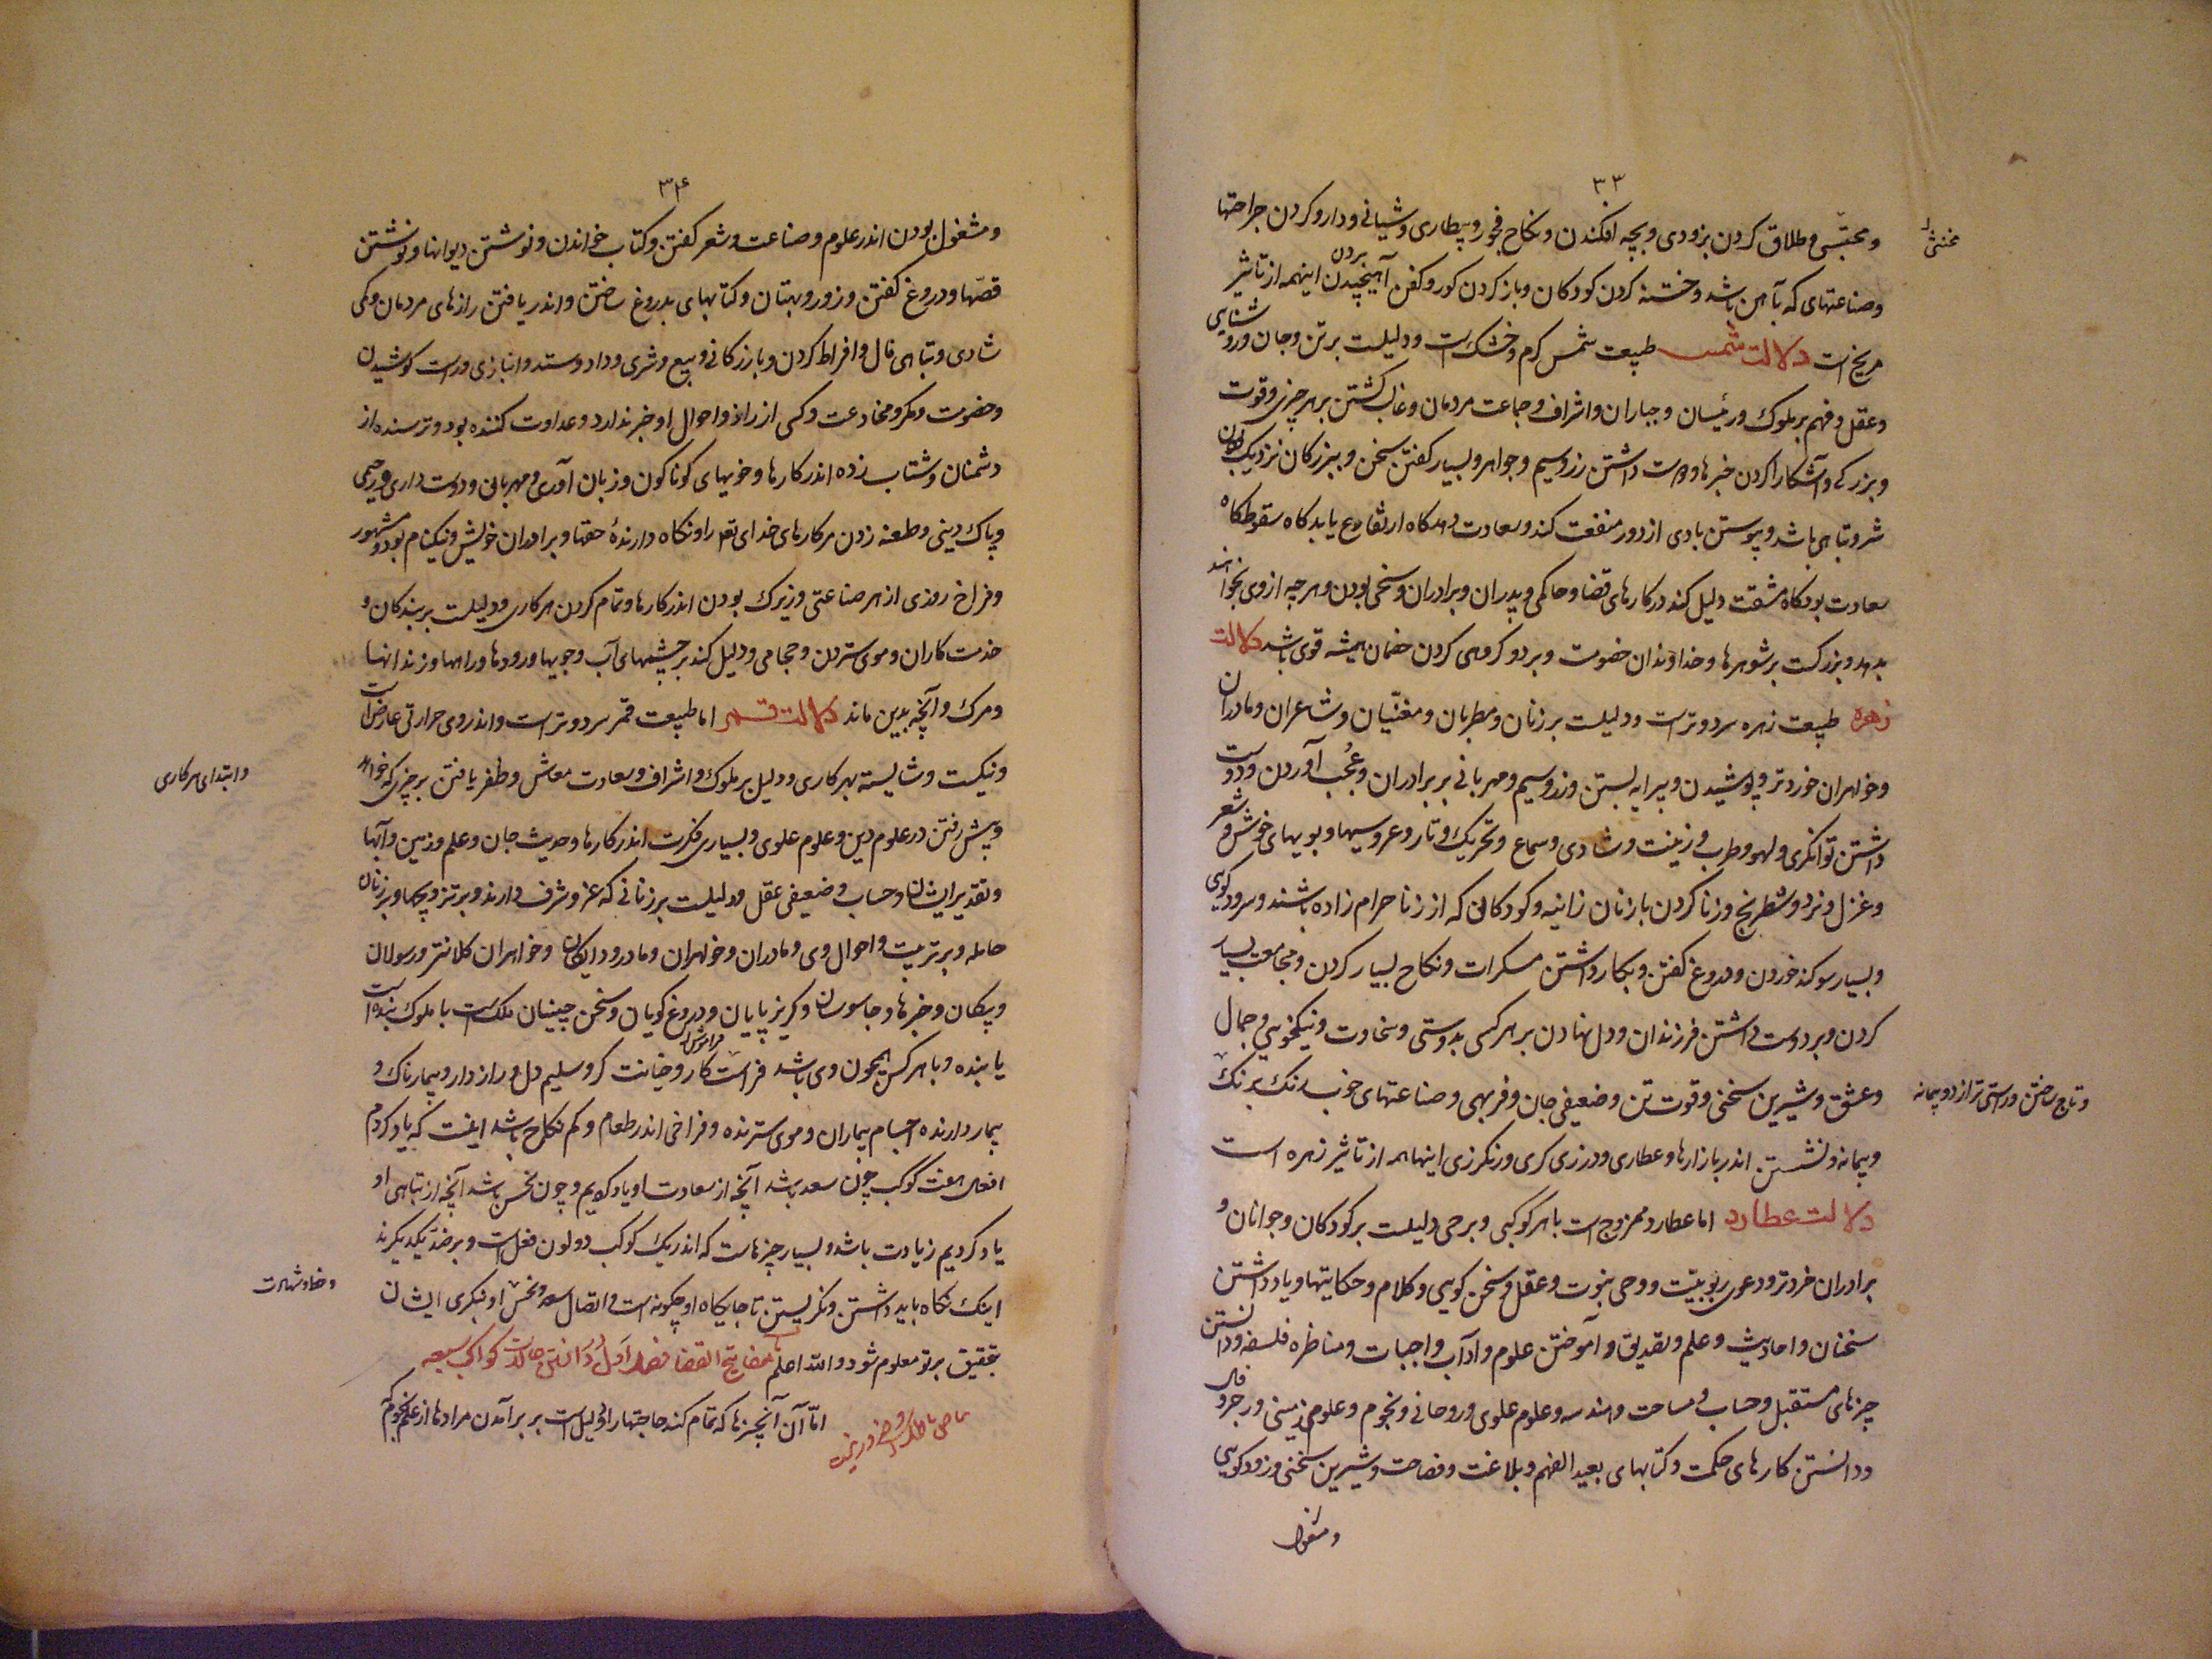 ۳۳
و طلاق کردن بزودی و بچه افکندن و نکاح فجور و بیطاری و شبانی و دارو کردن جراحتها
وصناعتهای که بآهن باشد وختنه کردن کودکان وباز کردن کور وکفن آهیختن بردن اینهمه از تاثیر
مریخ است دلالت شمس طبیعت شمس کرم وخشک است ودلیلست بر تن وجان وروشنایی
وعقل وفهم بر ملوک ورئیسان وجباران واشراف وجماعت مردمان وغالب کشتن بر هر چیزی وقوت
وبزرکی وآشکارا کردن خبرها ودوست داشتن زر وسیم وجواهر وبسیار کفتن سخن وببزرکان نزدیک
شر وتباهی باشد وپیوستن بادی از دور منفعت کند وسعادت دهد کاه ارتفاع یابد کاه سقوط کاه
سعادت بود کاه مشقت دلیل کند در کارهای قضا وحاکمی وپدران وبرادران وسخی بودن وهر چه از وی بخواهند
بدهد وبزرکست بر شوهرها وخداوندان خصومت وبر دو کروهی کردن خصمان همیشه قوی باشد دلالت
زهره طبیعت زهره سرد وتر است ودلیلست بر زنان ومطربان ومغنّیان وشاعران ومادران
وخواهران خوردتر وپوشیدن وپیرایه بستن وزر وسیم ومهربانی بر برادران وعُجب آوردن ودوست
داشتن توانکری ولهو وطرب وزینت وشادی وسماع وتحریک وتار وعروسیها وبویهای خوش وشعر
وغزل ونرد وشطرنج وزنا کردن بازنان زانیه وکودکانی که از زنا حرام زاده باشند وسرود کویی
وبسیار سوکند خوردن ودروغ کفتن وبکار داشتن مسکرات ونکاح بسیار کردن ومجامعت بسیار
کردن وبر دوست داشتن فرزندان ودل نهادن بر هر کسی بدوستی وسخاوت ونیکخویی وجمال
وعشق وشیرین سخنی وقوت تن وضعیفی جان وفربهی وصناعتهای خوب رنک برنک
وتاج ساختن وراستی ترازو وپیمانه
وپیمانه ونشستن اندر بازارها وعطاری ودرزی کری ورنکرزی اینها همه از تاثیر زهره است
دلالت عطارد اما عطارد ممزوج است با هر کوکبی وبرجی دلیلست بر کودکان وجوانان و
برادران خردتر ودعوی ربوبیّت ووحی نبوت وعقل وسخن کویی وکلام وحکایتها ویاد داشتن
سخنان واحادیث وعلم وتصدیق وآموختن علوم وآداب واجبات ومناظره فلسفه ودانستن
چیزهای مستقبل وحساب ومساحت وهندسه وعلوم علوی وروحانی ونجوم وعلوم زمینی وزجر وفال
ودانستن کارهای حکمت وکتابهای بعید الفهم وبلاغت وفصاحت وشیرین سخنی وزود کویی
ومشغول
۳۴
ومشغول بودن اندر علوم وصناعت وشعر کفتن وکتاب خواندن ونوشتن دیوانها ونوشتن
قصّها ودروغ کفتن وزور وبهتان وکتابهای بدروغ ساختن واندر یافتن رازهای مردمان وکمی
شادی وتباهی مال وافراط کردن وبازرکانی وبیع وشری وداد وستد وانبازی ودر است کوشیدن
وخصومت ومکر ومخادعت وکسی از راز واحوال او خبر ندارد وعداوت کننده بود وترسنده از
دشمنان وشتاب زده اندر کارها وخویهای کوناکون وزبان آوری ومهربانی ودوست داری ورحیمی
وپاک دینی وطعنه زدن مر کارهای خدای تع را ونکاه دارندهٔ حقها وبرادران خویش ونیکنام بود ومشهور
وفراخ روزی از هر صناعتی وزیرک بودن اندر کارها وتمام کردن هر کاری ودلیلست بر بندکان و
خدمت کاران وموی ستردن وحجامی ودلیل کند بر چشمهای آب وجویها ورودها وراهها وزندانها
ومرک وآنچه بدین ماند دلالت قمر اما طبیعت قمر سرد وتر است واندر وی حرارتی عارضی است
ونیکست وشایسته بهر کاری ودلیل بر ملوک واشراف وسعادت معاش وظفر یافتن بر چیزی که خواهد
وابتدای هر کاری
وپیش رفتن در علوم دین وعلوم علوی وبسیاری فکرت اندر کارها وحدیث جان وعلم وزمین وآبها
وتقدیر ایشان وحساب وضعیفی عقل ودلیلست بر زنانی که عز وشرف دارند وبر وبر زنان
حامله وبر تربیت واحوال وی ومادران وخواهران ومادر ودایکان وخواهران کلانتر ورسولان
وپیکان وخبرها وجاسوسان وکریز پایان ودروغ کویان وسخن چینیان ملک است با ملوک بنده است
یا بنده وبا هر کس همچون وی باشد فراموش کار وخیانت کر وسلیم دل وراز دار وبیمارناک و
بیمار دارنده اجسام بیماران وموی سترنده وفراخی اندر طعام وکم نکاح باشد اینست که یاد کردم
افعال هفت کوکب چون سعد باشد آنچه از سعادت او یاد کردیم وچون نحس باشد آنچه از تباهی او
یاد کردیم زیادت باشد وبسیار چیزهاست که اندر یک کوکب دو لون فعل است وبر ضد یکدیکرند
وحظ وشهادت
اینک نکاه باید داشتن ونکریستن تا جایکاه او چکونه است واتصال سعد ونحس او بنکری ایشان
بتحقیق بر تو معلوم شود والله اعلم مفاتیح القضا فصل اوّل در دانستن حالات کواکب سبعه
امّا آن آنچیزها که تمام کند حاجتها را دلیل است بر بر آمدن مرادها از علم نجوم